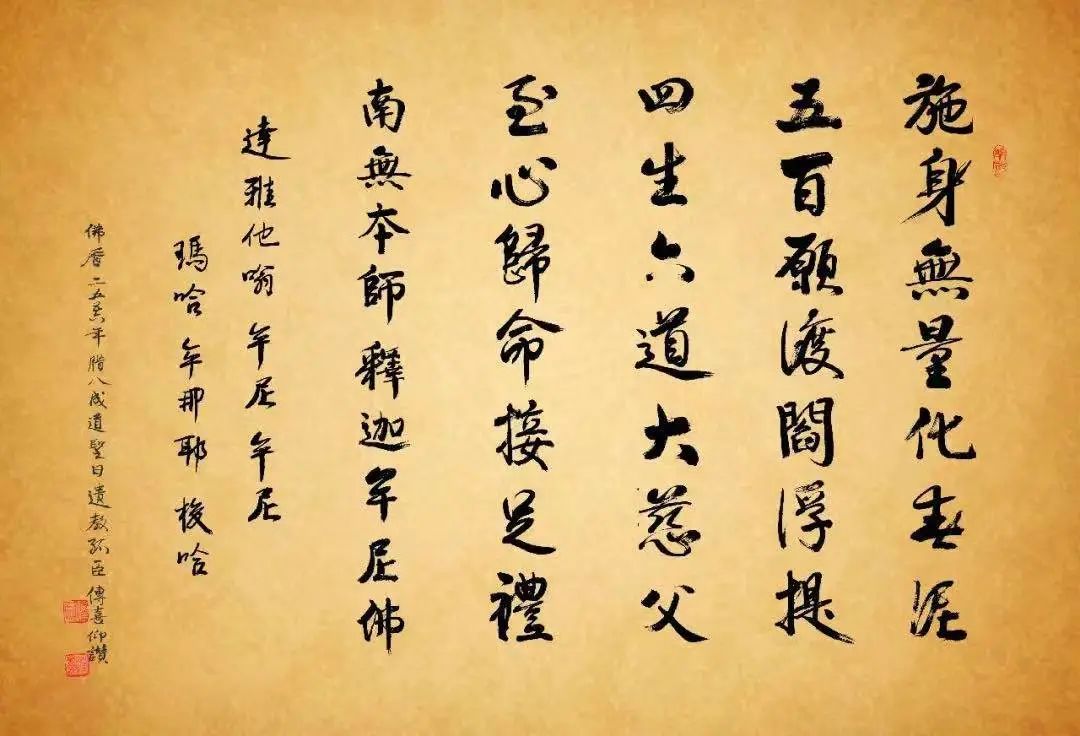 施身無量化春泥
五百願渡閻浮提
四生六道大慈父
至心歸命接足禮
南無本師釋迦牟尼佛
達雅他嗡牟尼牟尼
瑪哈牟那耶梭哈
佛曆二五五六年腊八成道聖日遺教孫臣傳喜仰讚